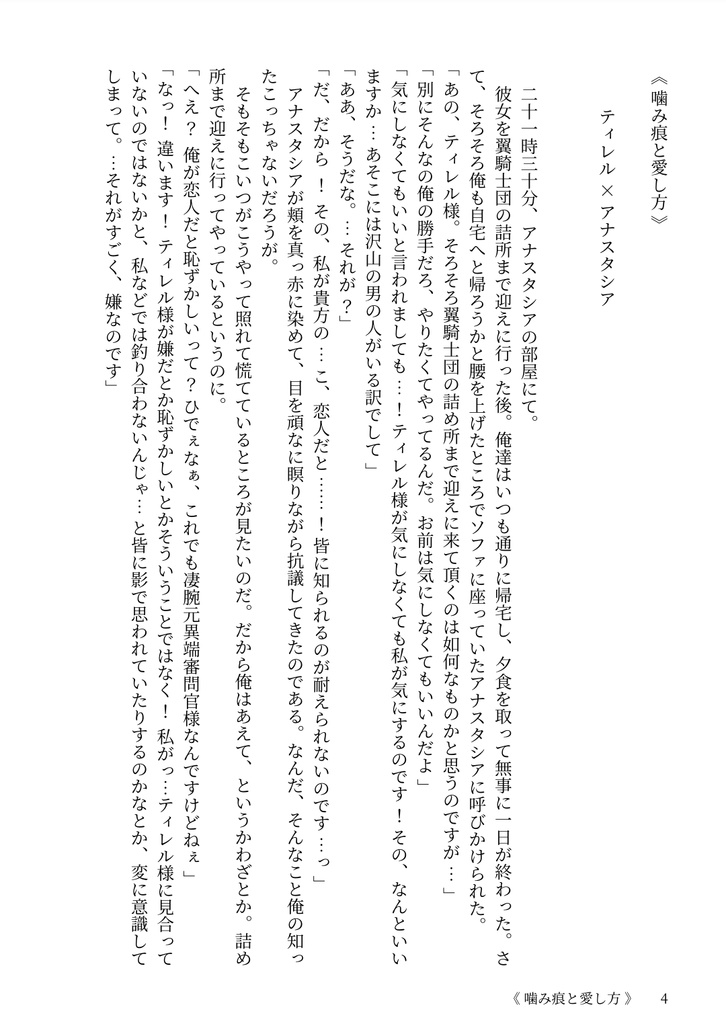 《噛み痕と愛し方》
ティレル×アナスタシア
二十一時三十分、アナスタシアの部屋にて。
彼女を翼騎士団の詰所まで迎えに行った後。俺達はいつも通りに帰宅し、夕食を取って無事に一日が終わった。さ
て、そろそろ俺も自宅へと帰ろうかと腰を上げたところでソファに座っていたアナスタシアに呼びかけられた。
「あの、ティレル様。そろそろ翼騎士団の詰め所まで迎えに来て頂くのは如何なものかと思うのですが…」
「別にそんなの俺の勝手だろ、やりたくてやってるんだ。お前は気にしなくてもいいんだよ」
「気にしなくてもいいと言われましても…！ティレル様が気にしなくても私が気にするのです！その、なんといい
ますか…あそこには沢山の男の人がいる訳でして」
「ああ、そうだな。…それが？」
「だ、だから！その、私が貴方の…こ、恋人だと……！皆に知られるのが耐えられないのです…っ」
アナスタシアが頬を真っ赤に染めて、目を頑なに瞑りながら抗議してきたのである。なんだ、そんなこと俺の知っ
たこっちゃないだろうが。
そもそもこいつがこうやって照れて慌てているところが見たいのだ。だから俺はあえて、というかわざとか。詰め
所まで迎えに行ってやっているというのに。
「へえ？俺が恋人だと恥ずかしいって？ひでぇなぁ、これでも凄腕元異端審問官様なんですけどねぇ」
「なっ！違います！ティレル様が嫌だとか恥ずかしいとかそういうことではなく！私がっ…ティレル様に見合って
いないのではないかと、私などでは釣り合わないんじゃ…と皆に影で思われていたりするのかなとか、変に意識して
しまって。…それがすごく、嫌なのです」
《噛み痕と愛し方》 4